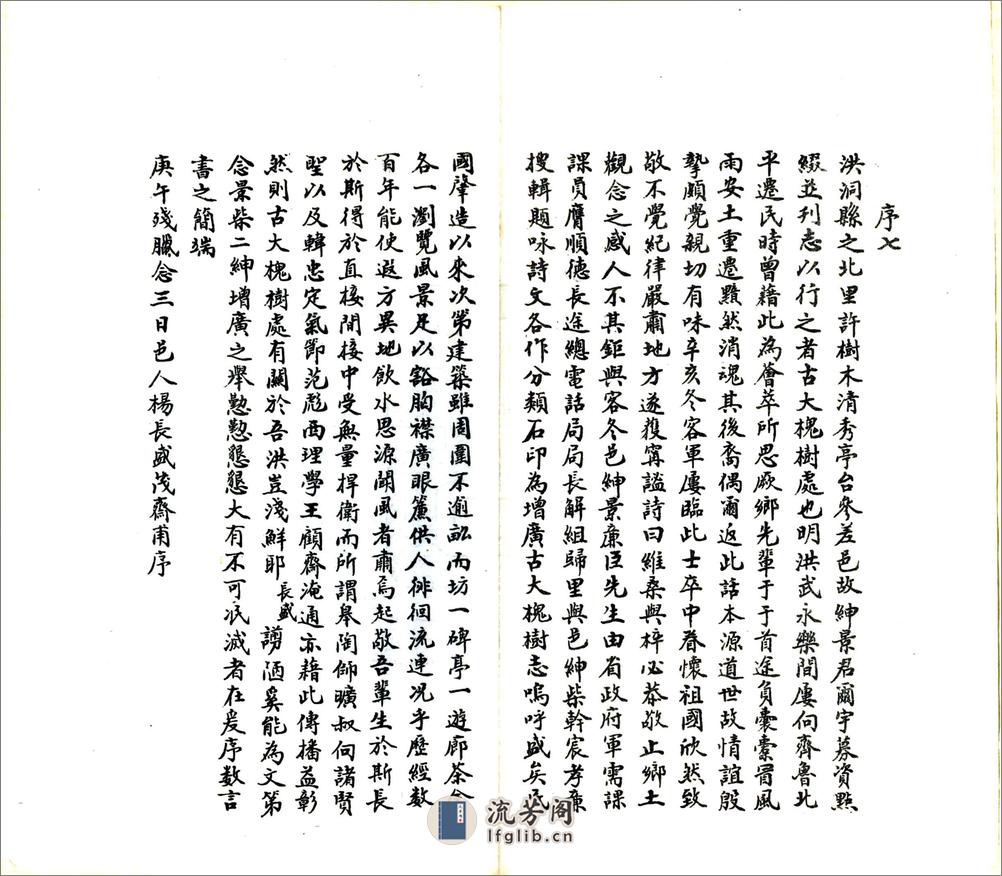 序七
洪洞縣之北里許樹木清秀亭台參差邑故紳景君爾宇募資點
綴並刊志以行之者古大槐樹處也明洪武永樂間屢向齊魯北
平遷民時曾藉此為薈萃所思厥鄉先輩于于首途負囊橐冒風
雨安土重遷黯然消魂其後裔偶爾返此話本源道世故情誼殷
摯頗覺親切有味辛亥冬客軍屢臨此士卒中眷懷祖國欣然致
敬不覺紀律嚴肅地方遂獲寧謐詩曰維桑與梓必恭敬止鄉土
觀念之感人不其鉅與客冬邑紳景廉臣先生由省政府軍需課
課員膺順德長途總電話局局長解組歸里與邑紳柴幹宸孝廉
搜輯題咏詩文各作分類石印為增廣古大槐樹志嗚呼盛矣民
國肇造以來次第建築雖周圍不逾畝而坊一碑亭一遊廊茶舍
各一瀏覽風景足以豁胸襟廣眼簾供人徘徊流連况乎歷經數
百年能使遐方異地飲水思源聞風者肅焉起敬吾輩生於斯長
於斯得於直接間接中受無量捍衛而所謂皋陶師曠叔向諸賢
聖以及韓忠定氣節范彪西理學王顧齋淹通亦藉此傳播益彰
然則古大槐樹處有關於吾洪豈淺鮮耶長盛謭陋奚能為文第
念景柴二紳增廣之舉懃懃懇懇大有不可泯滅者在爰序数言
書之簡端
庚午殘臘念三日邑人楊長盛茂齋甫序
流芳阁
lfglib.cn